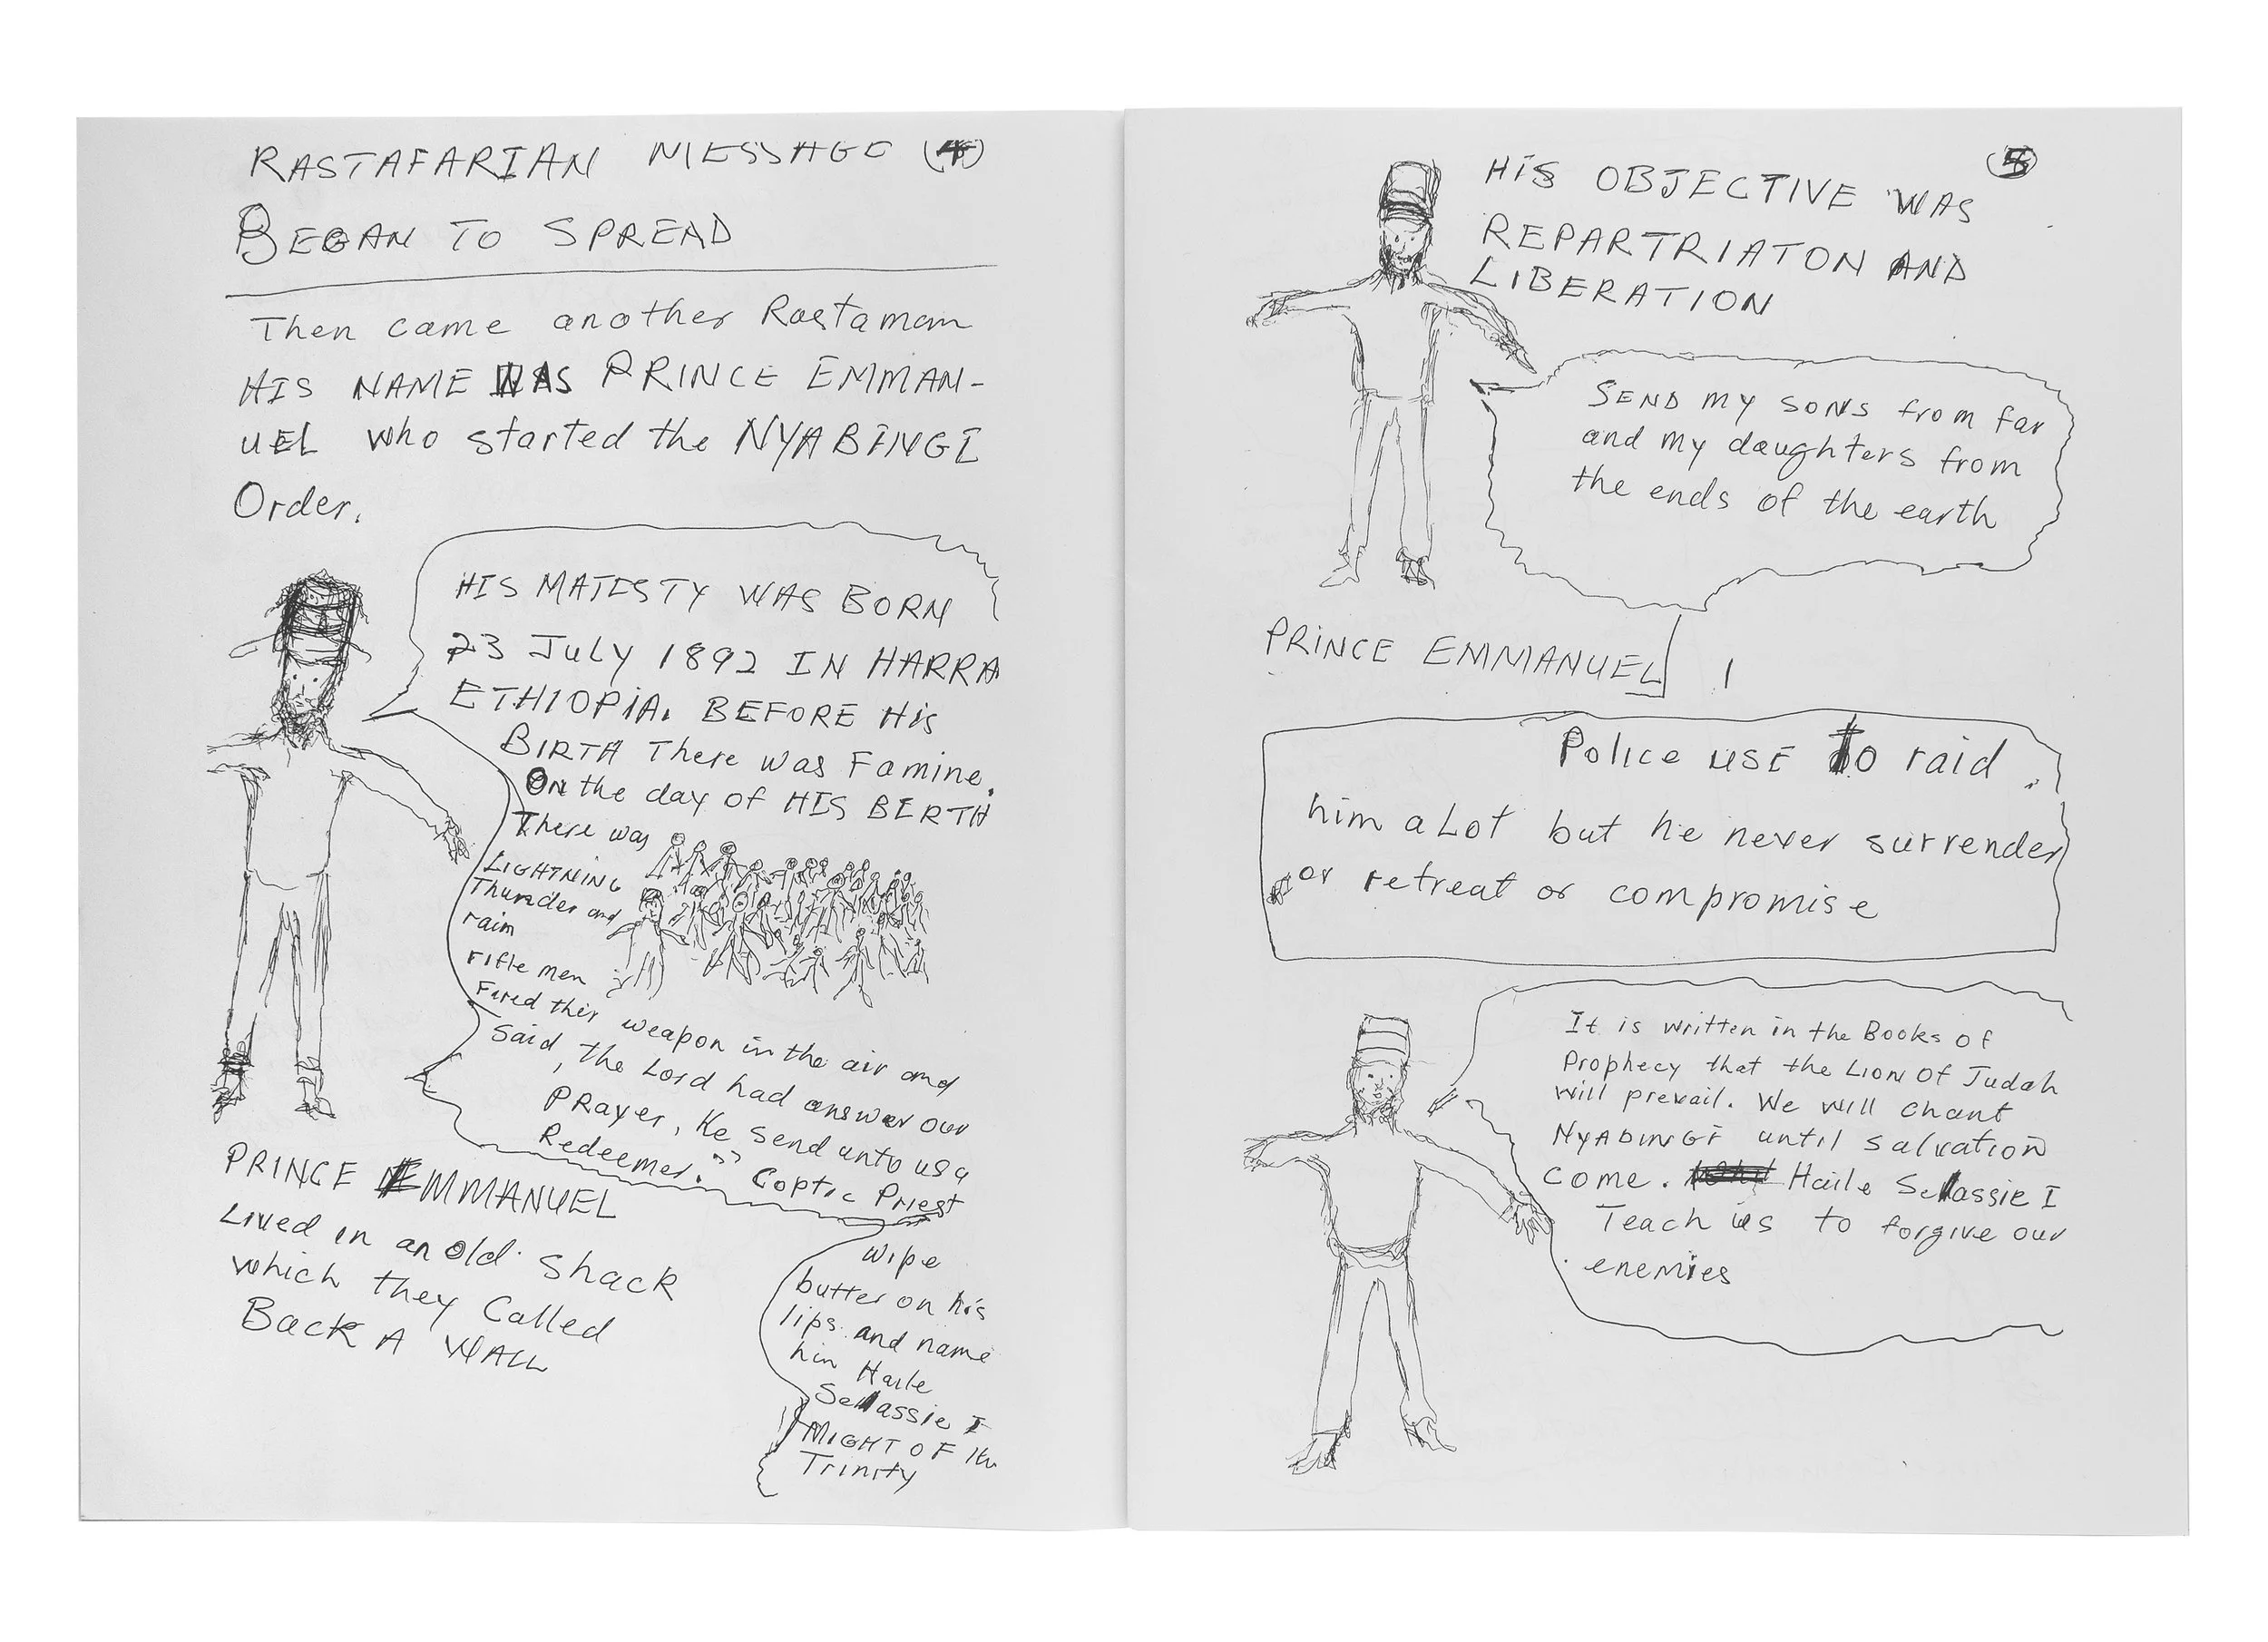 RASTAFARIAN MESSAGE (4)
BEGAN TO SPREAD
Then came another Rastaman
HIS NAME WAS PRINCE EMMAN-
UEL who started the NYABINGI
Order.
HIS MAJESTY WAS BORN
23 JULY 1892 IN HARRA
ETHIOPIA. BEFORE His
BIRTH There was Famine.
ON the day of HIS BERTH
There was
LIGHTNING
Thunder and
rain
rifle men
Fired thir weapon in the air and
Said, the Lord had answer our
PRayer, He send unto us a
Redeemer." Coptic Priest
wipe
butter on his
lips and name
him Haile
Sellassie I
MIGHT OF the
Trinity
PRINCE EMMANUEL
Lived in an old shack
which they Called
Back A WALL
(5)
HIS OBJECTIVE WAS
REPARTRIATON AND
LIBERATION
SEND my sons from far
and my daughters from
the ends of the earth
PRINCE EMMANUEL
Police USE to raid
him a Lot but he never surrender
or retreat or compromise
It is written in the Books of
Prophecy that the LION Of Judah
will prevail. We will chant
NYABINGI until salvation
come. Haile Sellassie I
Teach us to forgive our
enemies